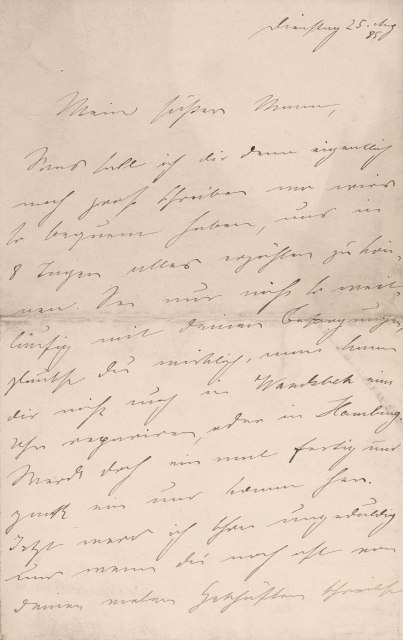 Dienstag 25. Aug
85.
Mein süßer Mann,
Was soll ich dir denn eigentlich
noch groß schreiben wo wir's
so bequem haben, uns in
8 Tagen alles erzählen zu kön-
nen. Sei nur nicht so weit-
läufig mit deinen Besorgungen,
glaubst du wirklich, man kann
dir nicht auch in Wandsbek eine
Uhr repariren, oder in Hamburg.
Werde doch ein mal fertig und
pack ein und komm her.
Jetzt werd ich schon ungeduldig
und wenn du noch oft von
deinen vielen Geschäften schreibst